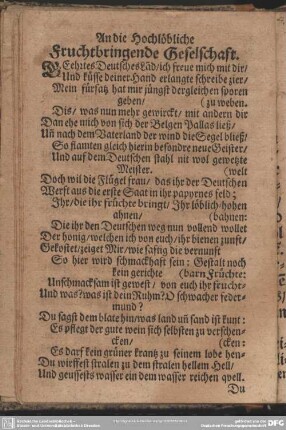 An die Hochlöbliche
Fruchtbringende Geselschaft.
GEehrtes Deutsches Läd/ich freue mich mit dir/
Und küsse deiner Hand erlangte schreibe zier/
Mein fürsatz hat mir jüngst dergleichen sporen
geben/ (zu weben.
Dis/ was nun mehr gewirckt/ mit andern dir
Dan ehe mich von sich der Belgen Pallas ließ/
Uñ nach dem Vaterland der wind die Segel bließ/
So flamten gleich hierin besondre neue Geister/
Und auf dem Deutschen stahl nit wol gewetzte
Meister. (welt
Doch wil die Flügel frau/ das ihr der Deutschen
Werft aus die erste Saat in ihr papyrnes feld;
Ihr/die ihr früchte bringt/ Ihr löblich-hohen
ahnen/ (bahnen:
Die ihr den Deutschen weg nun vollend wollet
Der honig/welchen ich von euch/ihr bienen zunft/
Gekostet/zeiget Mir/wie safftig die vernunft
So hier wird schmackhaft sein: Gestalt noch
kein gerichte (barn Früchte:
Unschmacksam ist gewest/ von euch ihr frucht-
Und was? was ist dein Ruhm? O schwacher feder-
mund?
Du sagst dem blate hin/was land uñ sand ist kunt:
Es pflegt der gute wein sich selbsten zu verschen-
cken/ (cken:
Es darf kein grüner krantz zu seinem lobe hen-
Du wirffest stralen zu dem stralen hellem Hell/
Und geussests wasser ein dem wasser reichen qvell.
Du